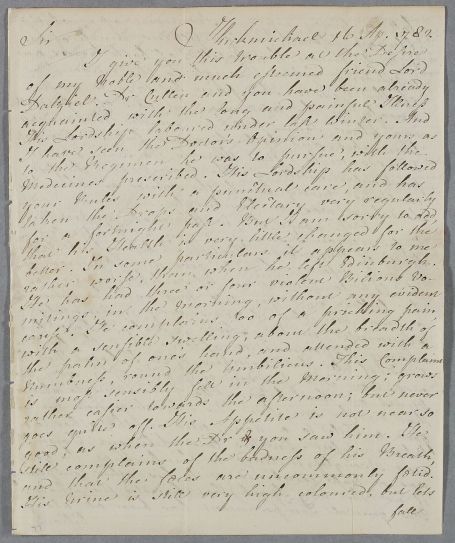 Sir Kirkmichael 16 Ap. 1782.
I give you this trouble at the Desire
of my Noble and much esteemed friend Lord
Dalziel. Dr Cullen and you have been already
acquainted with the long and painful Illness
His Lordship laboured under last Winter. And
I have seen the Doctors Opinion and yours as
to the Regimen he was to pursue, with the
Medicines prescribed. His Lordship has followed
your Rules with a punctual care, and has
taken the Drops and Electary very regularly
for a fortnight past. But I am sorry to add
that his Health is very little changed for the
better. In some particulars it appears to me
rather worse, than when he left Edinburgh.
He has had three or four violent Bilious Vo-
mitings in the Morning, without any evident
cause. He complains too of a pricking pain
with a sensible swelling, about the breadth of
the palm of ones hand, and attended with a
Numbness, round the Umbilicus. This Complaint
is most sensibly felt in the Morning; grows
rather easier towards the afternoon; but never
goes quite off. His Appetite is not near so
good, as when the Dr & you saw him. He
still complains of the badness of his Breath
and that the fæces are uncommonly fœtid.
His Urine is still very high coloured, but lets
fall